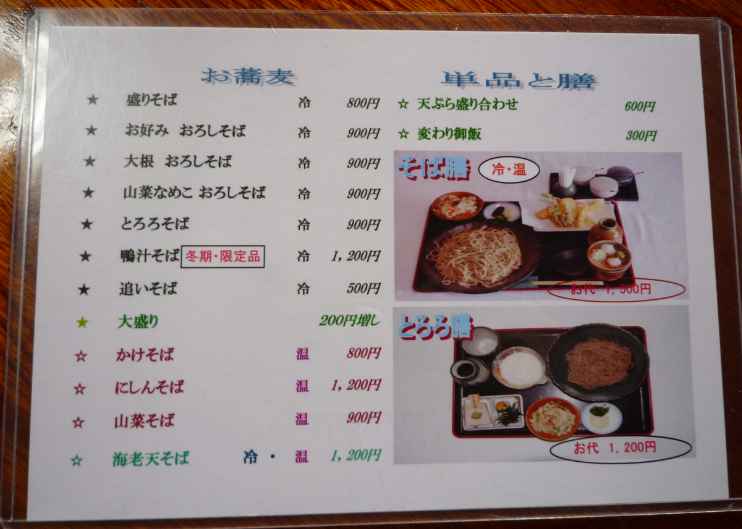 お蕎麦
★ 盛りそば 冷 800円
★ お好み おろしそば 冷 900円
★ 大根 おろしそば 冷 900円
★ 山菜なめこ おろしそば 冷 900円
★ とろろそば 冷 900円
★ 鴨汁そば 冬期・限定品 冷 1,200円
★ 追いそば 冷 500円
★ 大盛り 200円増し
☆ かけそば 温 800円
☆ にしんそば 温 1,200円
☆ 山菜そば 温 900円
☆ 海老天そば 冷・温 1,200円
単品と膳
☆ 天ぷら盛り合わせ 600円
☆ 変わり御飯 300円
そば膳 冷・温
お代 1,500円
とろろ膳
お代 1,200円